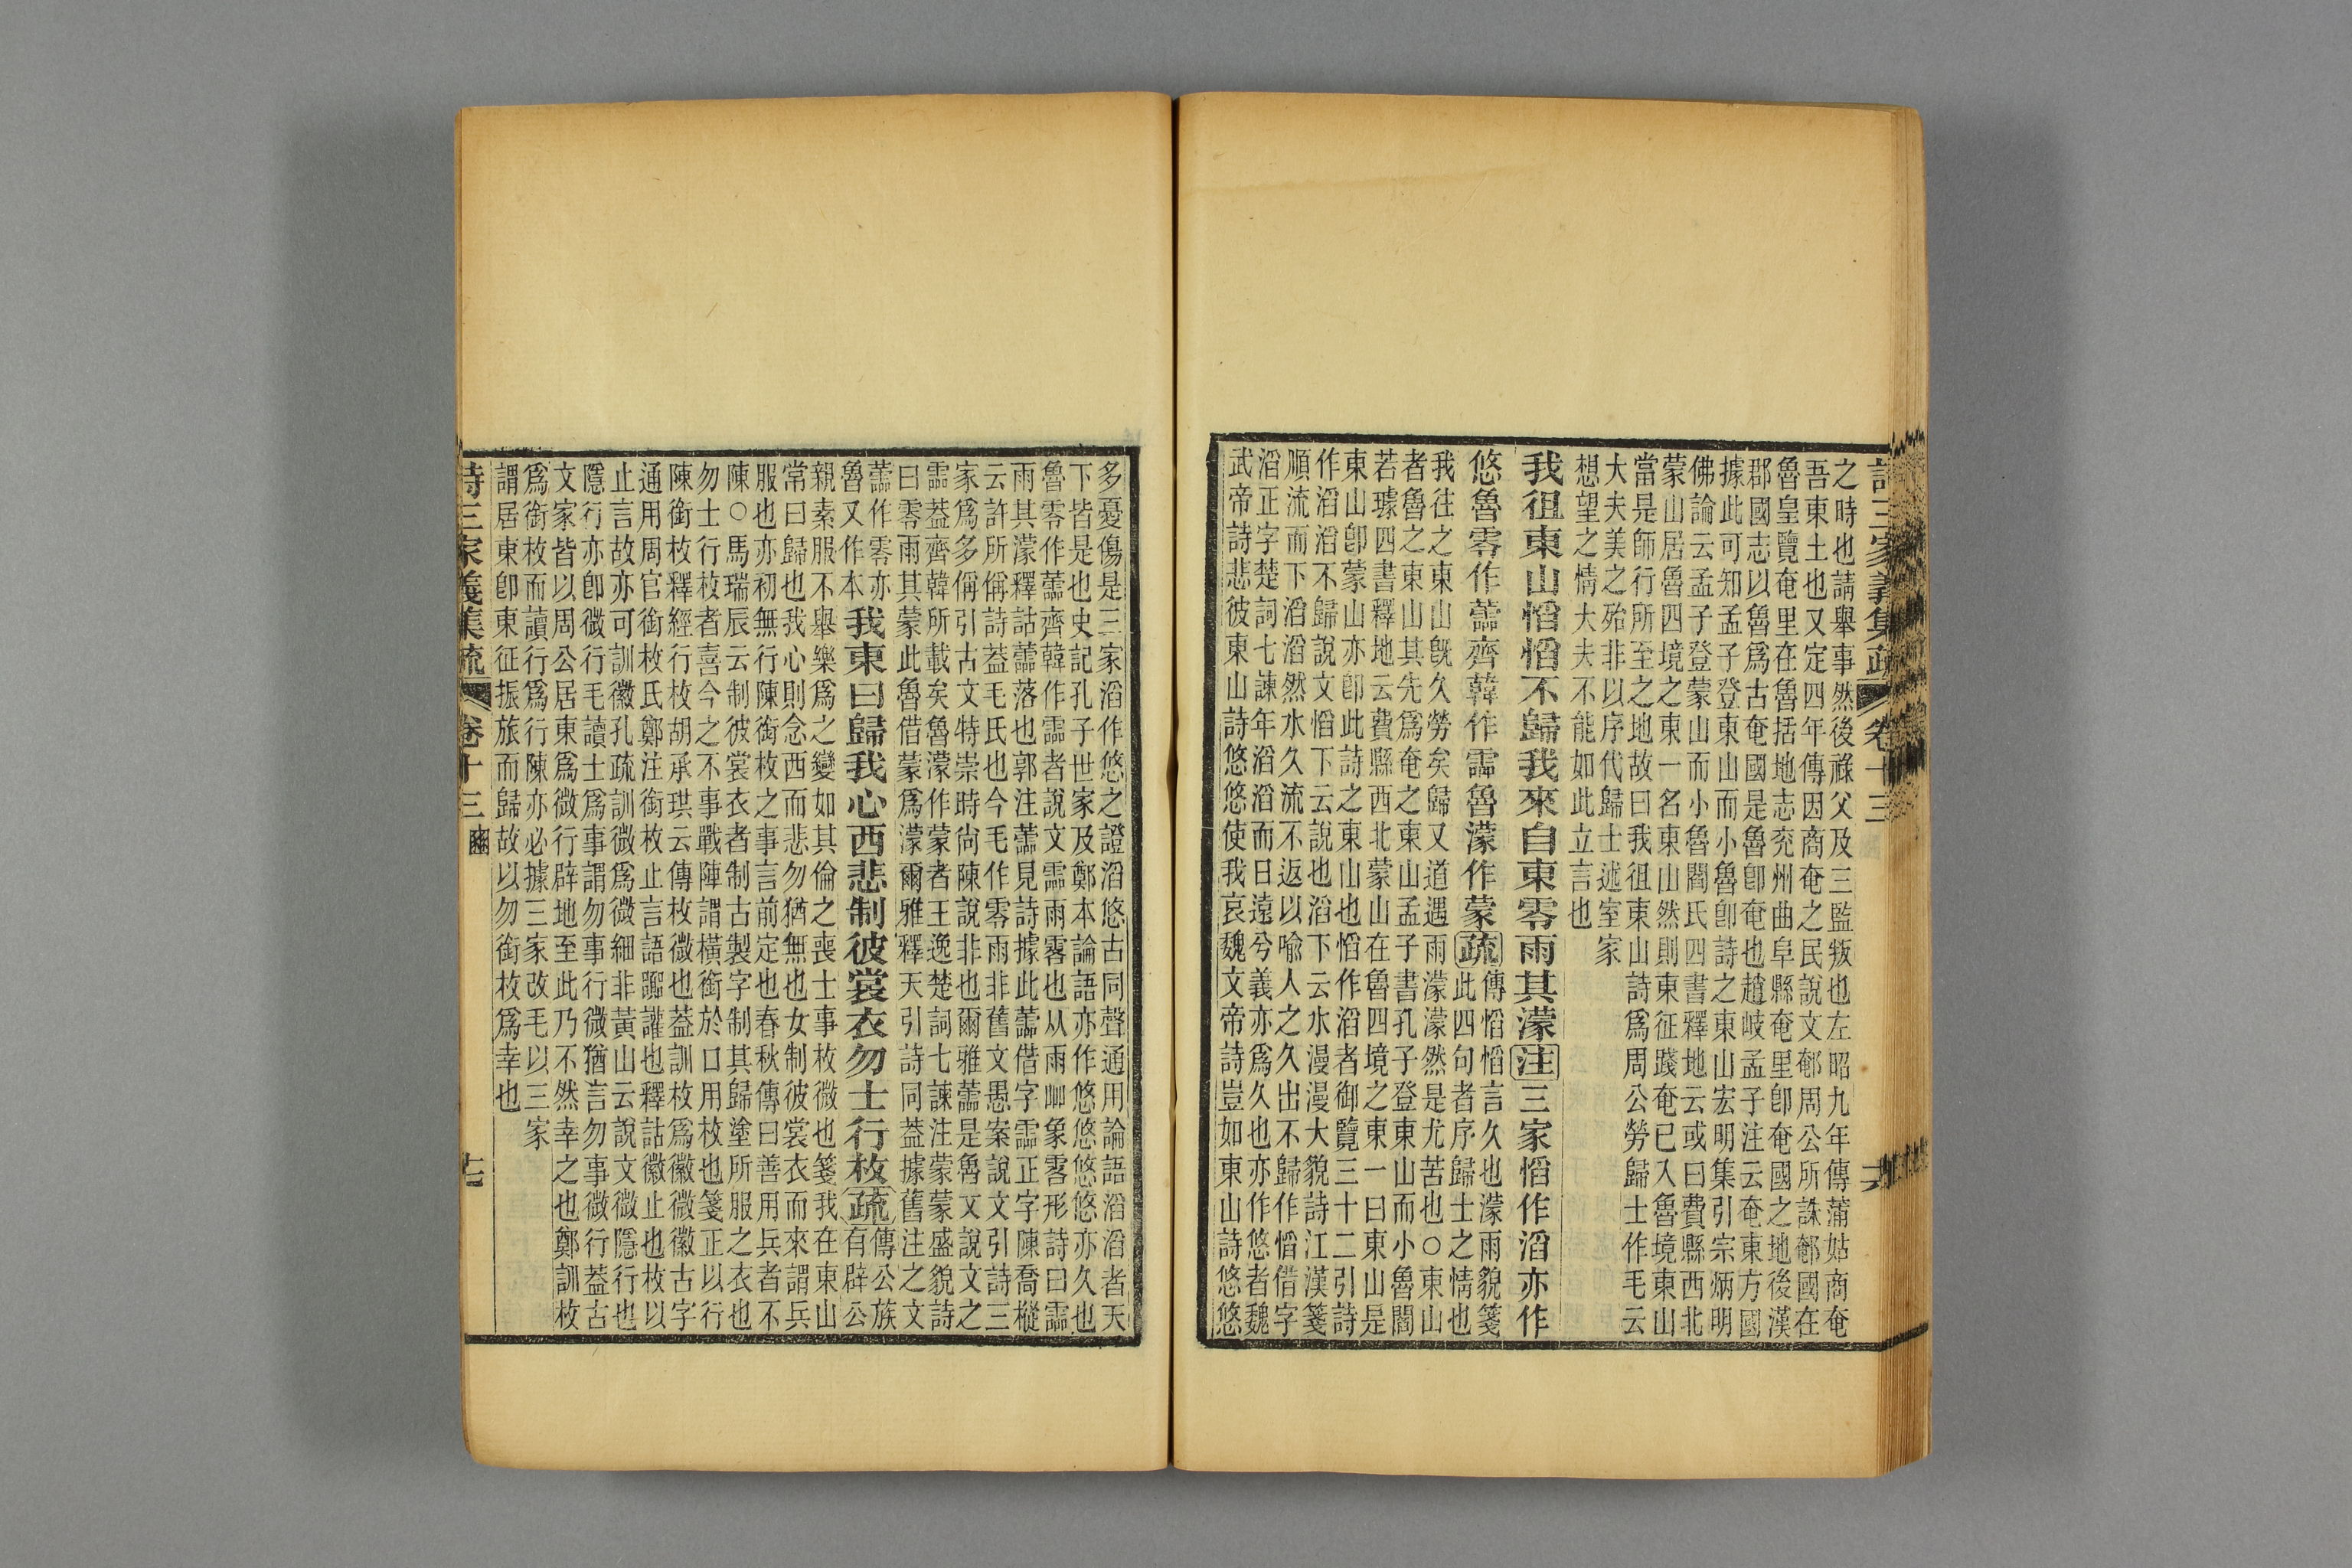 詩三家義集疏 卷十三 十六
之時也請舉事然後祿父及三監叛也左昭九年傳蒲姑商奄
吾東土也又定四年傳因商奄之民說文郁周公所誅郁國在
魯皇覽奄里在魯括地志兖州曲阜縣奄里卽奄國之地後漢
郡國志以魯爲古奄國是魯卽奄也趙岐孟子注云奄東方國
據此可知孟子登東山而小魯卽詩之東山宏明集引宗炳明
佛論云孟子登蒙山而小魯閻氏四書釋地云或曰費縣西北
蒙山居魯四境之東一名東山然則東征踐奄已入魯境東山
當是師行所至之地故曰我徂東山詩爲周公勞歸士作毛云
大夫美之殆非以序代歸士述室家
想望之情大夫不能如此立言也
我徂東山慆慆不歸我來自東零雨其濛注三家慆作滔亦作
悠魯零作蘦齊韓作霝魯濛作蒙疏
傳慆慆言久也濛雨貌箋
此四句者序歸士之情也
我往之東山旣久勞矣歸又道遇雨濛濛然是尤苦也○東山
者魯之東山其先爲奄之東山孟子書孔子登東山而小魯閻
若璩四書釋地云費縣西北蒙山在魯四境之東一曰東山是
東山卽蒙山亦卽此詩之東山也慆作滔者御覽三十二引詩
作滔滔不歸說文慆下云說也滔下云水漫漫大貌詩江漢箋
順流而下滔滔然水久流不返以喻人之久出不歸作慆借字
滔正字楚詞七諫年滔滔而日遠兮義亦爲久也亦作悠者魏
武帝詩悲彼東山詩悠悠使我哀魏文帝詩豈如東山詩悠悠
多憂傷是三家滔作悠之證滔悠古同聲通用論語滔滔者天
下皆是也史記孔子世家及鄭本論語亦作悠悠悠悠亦久也
魯零作蘦齊韓作霝者說文霝雨零也从雨𠱠象零形詩曰霝
雨其濛釋詁蘦落也郭注蘦見詩據此蘦借字霝正字陳喬樅
云許所偁詩蓋毛氏也今毛作零雨非舊文愚案說文引詩三
家爲多偁引古文特崇時尙陳說非也爾雅蘦是魯文說文之
霝蓋齊韓所載矣魯濛作蒙者王逸楚詞七諫注蒙蒙盛貌詩
曰零雨其蒙此魯借蒙爲濛爾雅釋天引詩同蓋據舊注之文
蘦作零亦
魯又作本
我東曰歸我心西悲制彼裳衣勿士行枚疏
傳公族
有辟公
親素服不舉樂爲之變如其倫之喪士事枚微也箋我在東山
常曰歸也我心則念西而悲勿猶無也女制彼裳衣而來謂兵
服也亦初無行陳銜枚之事言前定也春秋傳曰善用兵者不
陳○馬瑞辰云制彼裳衣者制古製字制其歸塗所服之衣也
勿士行枚者喜今之不事戰陣謂橫銜於口用枚也箋正以行
陳銜枚釋經行枚胡承珙云傳枚微也蓋訓枚爲徽微徽古字
通用周官銜枚氏鄭注銜枚止言語囂讙也釋詁徽止也枚以
止言故亦可訓徽孔疏訓微爲微細非黃山云說文微隱行也
隱行亦卽微行毛讀士爲事謂勿事行微猶言勿事微行蓋古
文家皆以周公居東爲微行辟地至此乃不然幸之也鄭訓枚
爲銜枚而讀行爲行陳亦必據三家改毛以三家
謂居東卽東征振旅而歸故以勿銜枚爲幸也
詩三家義集疏 卷十三 豳 十七